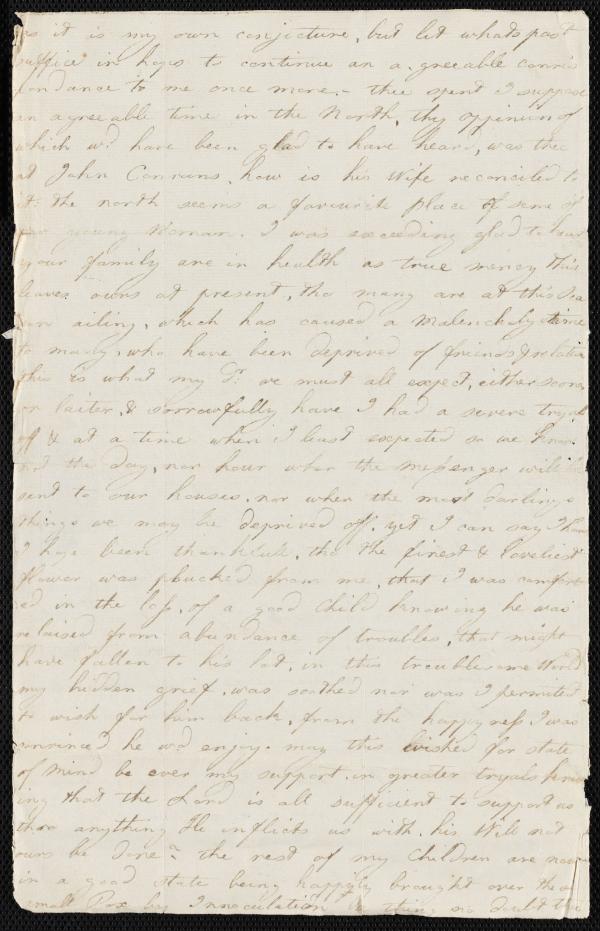 as it is my own conjecture, but let whats past
suffice in hops to continue an a,greeable corris
pondance to me once more.- thee spent I suppose
an agreeable time in the North, thy oppinion of
which wd have been glad to have heard, was thee
at John Conrans, how is his Wife reconciled to
it. the north seems a favourite place of some of
our young Woman. I was exceeding glad to hear
your family are in health as true mercy this
leaves ours at present, tho many are at this Sea
son ailing, which has caused a Malencholy time
to many, who have been deprived of friends & relatio
this is what my Dr: we must all expect, either sooner
or laiter, & sorrowfully have I had a severe tryal
off & at a time when I least expected so we know
not the Day, nor hour when the messenger will be
sent to our houses, nor when the most darlings
things we may be deprived off. yet I can say I have
I hope been thankfull, tho the finest & loveliest
flower was plucked from me, that I was comfort
ed in the loss, of a good Child knowing he was
relaised from abundance of troubles, that might
have fallen to his lot, in this troublesome World
my hidden grief, was soothed nor was I permited
to wish for him back, from the happyness I was
convinced he wd enjoy. may this wished for state
of Mind be ever my support in greater tryals know
ing that the Lord is all sufficient to support us
thro anything He inflicts us with. his Will not
ours be Done. the rest of my Children are now
in a good state being happily brought over the
small Pox by Innoculation thing no doubt thee